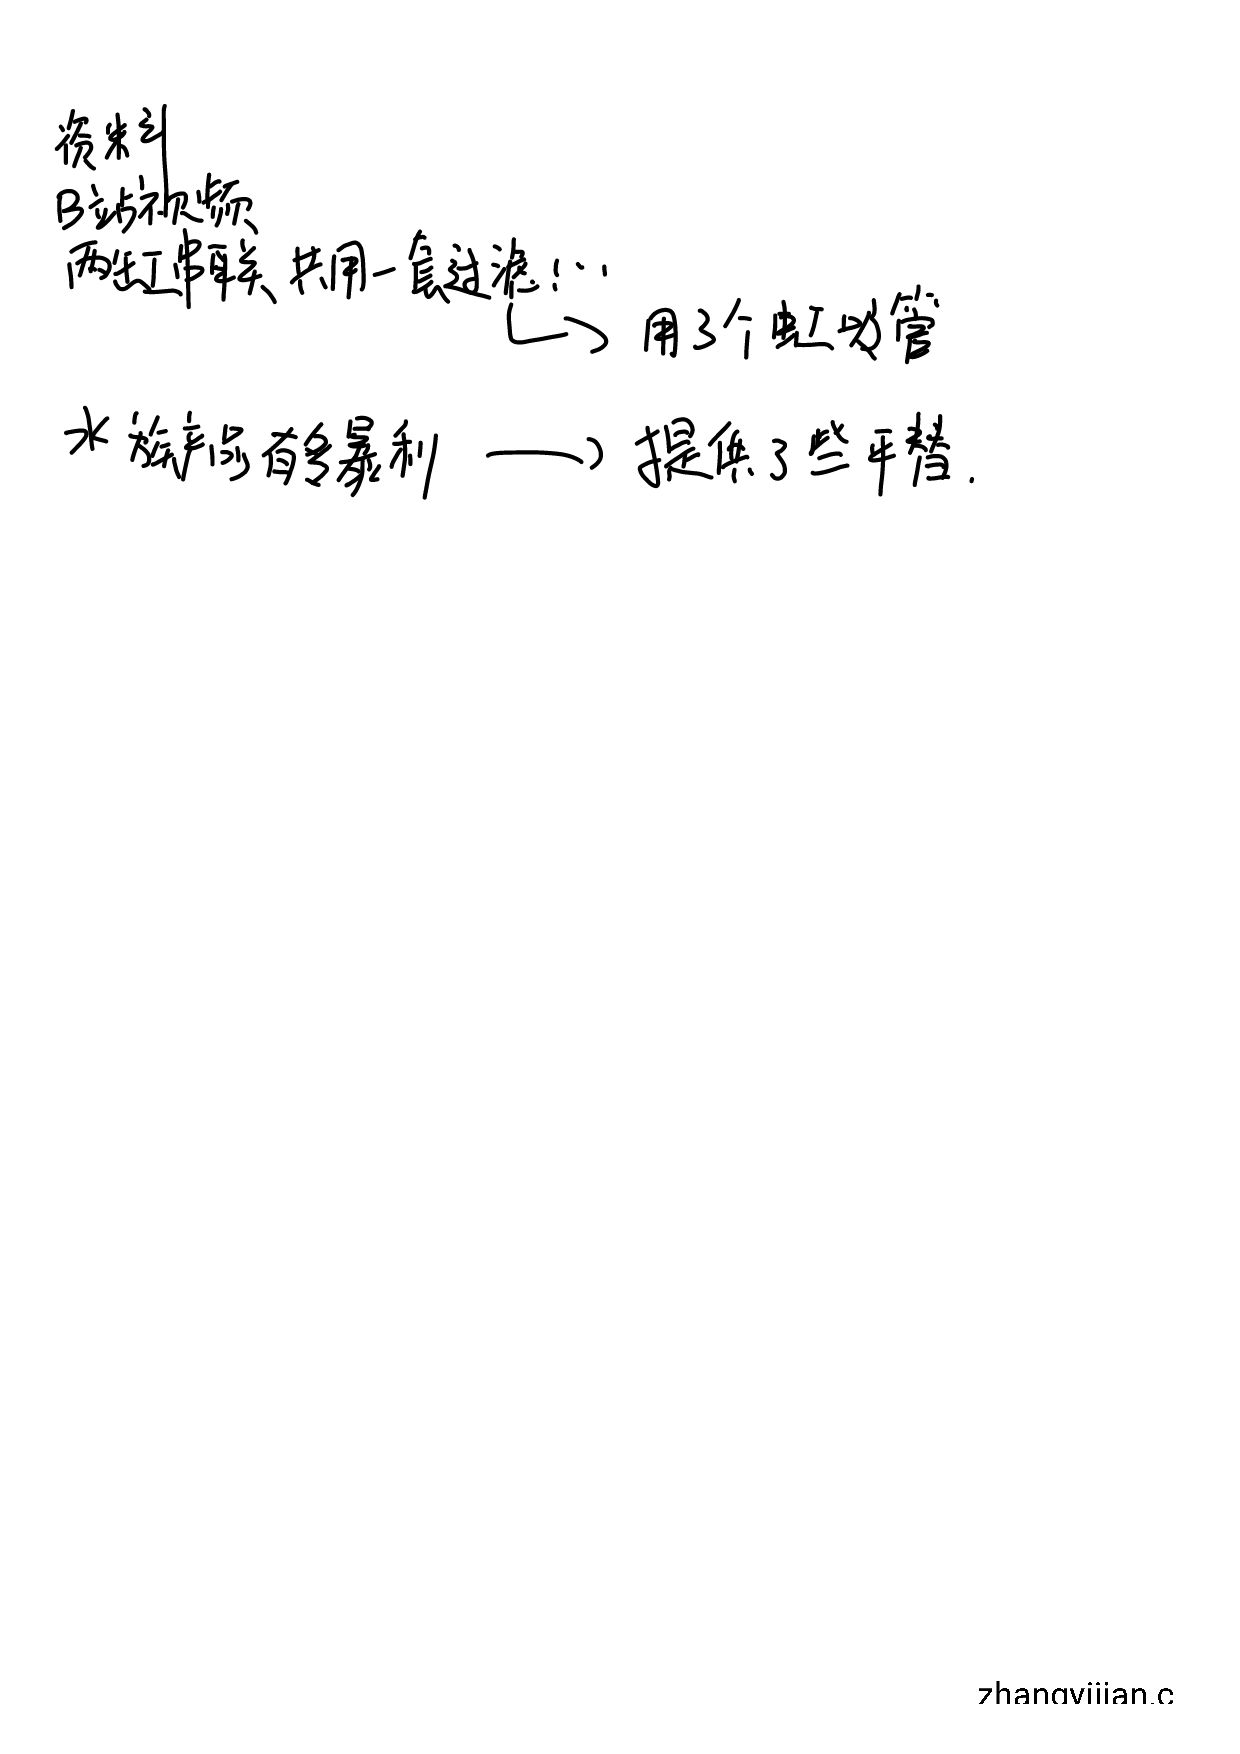 资料
B站视频
两缸串联 共用一套过滤!...
用3个虹吸管
水族产品有多暴利 → 提供了些平替.
zhangyijian.c